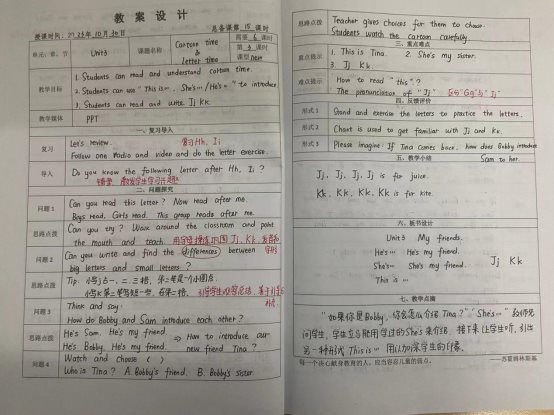 教 案 设 计
授课时间: 2023 年 10 月 30 日 总备课第 15 课时
单元、章、节 Unit3 课题名称 Cartoon time & letter time 需要 6 课时
第 3 课时
课型 new
教学目标
1. Students can read and understand cartoon time.
2. Students can use "This is... She's.../He's..." to introduce.
3. Students can read and write Jj Kk.
教学媒体 PPT
一、复习导入
复习 Let's review. 复习 Hh, Ii
Follow the radio and video and do the letter exercise.
导入 Do you know the following letter after Hh, Ii?
激发学生学习兴趣
二、问题探究
问题1 Can you read this letter? Now read after me.
Boys read, Girls read. This group reads after me.
思路点拨 Can you try? Walk around the classroom and point
the mouth and teach. Jj, Kk,
问题2 Can you write and find the differences between
big letters and small letters?
思路点拨 Tip. 小写j占一、二、三格, 第二笔是一个小圆点.
问题3 Think and say:
How do Bobby and Sam introduce each other?
思路点拨 He's Sam. He's my friend. ⇒ How to introduce our
He's Bobby. He's my friend. new friend Tina?
问题4 Watch and choose ( )
Who is Tina? A. Bobby's friend. B. Bobby's sister.
思路点拨 Teacher gives choices for them to choose.
Students watch the cartoon carefully.
三、重点难点
重点提示 1. This is Tina. 2. She's my sister.
3. Jj Kk
难点提示 How to read "this"?
The pronunciation of "Jj" 区分"Gg"与"Jj"
四、反馈评价
形式1 Stand and exercise the letters to practice the letters.
形式2 Chant is used to get familiar with Jj and Kk.
形式3 Please imagine: If Tina comes back, how does Bobby introduce
Sam to her.
五、教学小结
Jj, Jj, Jj, Jj is for juice.
Kk, Kk, Kk, Kk is for kite.
六、板书设计
Unit3 My friends.
He's... He's my friend.
She's... She's my friend. Jj Kk
This is...
七、教学点滴
"如果你是Bobby, 你会怎么介绍Tina?" "She's..." 教师先
问学生, 学生立马能用学过的She's来介绍, 接下来让学生听, 引出
另一种形式This is... 用以加深学生的印象.
每一个决心献身教育的人,应当容忍儿童的弱点。 ——苏霍姆林斯基